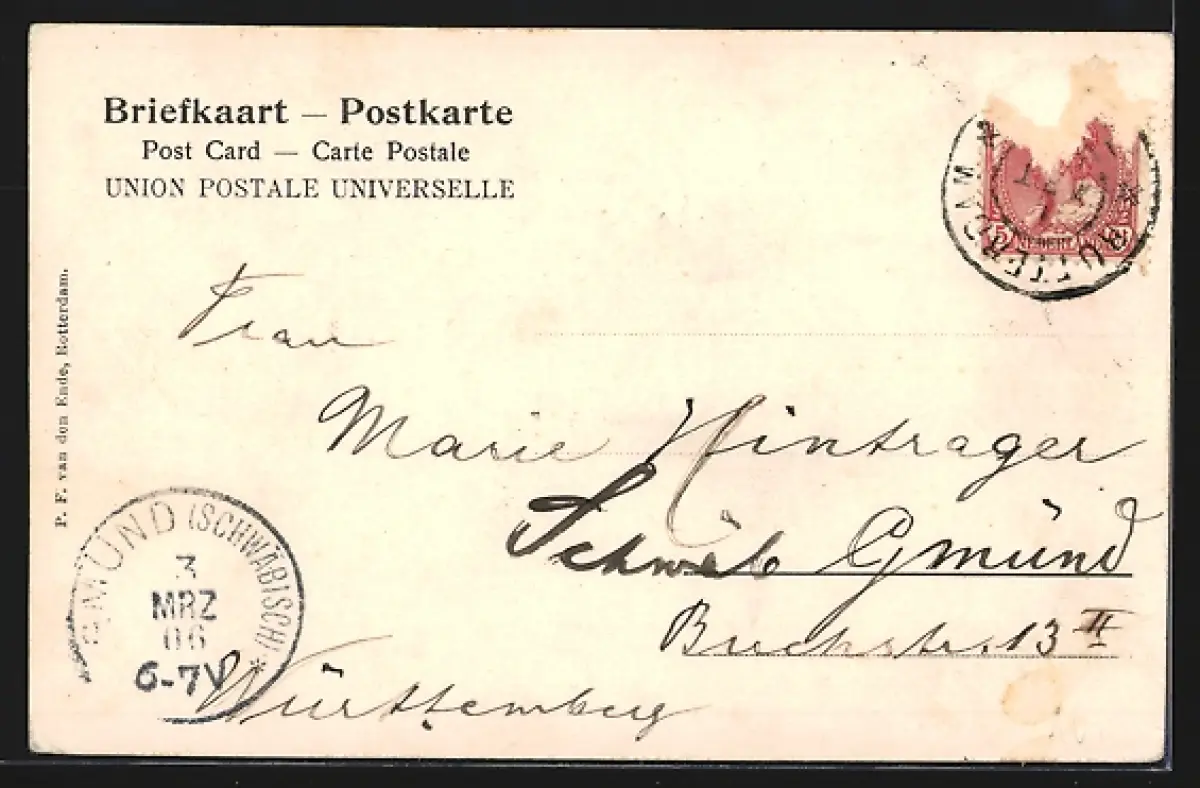 Briefkaart — Postkarte
Post Card — Carte Postale
UNION POSTALE UNIVERSELLE
ROTTERDAM
5 NEDERL
P. F. van den Ende, Rotterdam.
Frau
Marie Hintrager
Schwäb Gmünd
Buchstr. 13 II
Württemberg
GMÜND (SCHWÄBISCH) *
3
MRZ
06
6-7V